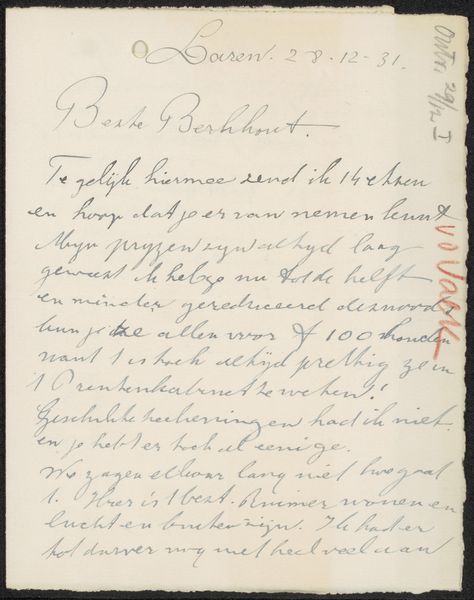 Laren. 28-12-31.
Beste Berkhout.
Tegelijk hiermee zend ik 14 etsen
en hoop dat je er van nemen kunt
Mijn pryzen zyn altyd laag
geweest ik heb ze nu tot de helft
en minder gereduceerd desnoods
kun je ze allen voor f 100 houden
want 't is toch altyd prettig ze in
't Prentenkabinet te weten!
Geschikte teekeningen had ik niet
en je hebt er toch al eenige.
We zagen elkaar lang niet hoe gaat
't. Hier is 't best. Ruimer wonen en
lucht en buiten zyn. Ik had er
tot dusver nog niet heel veel aan
Ontv. 29/12 I